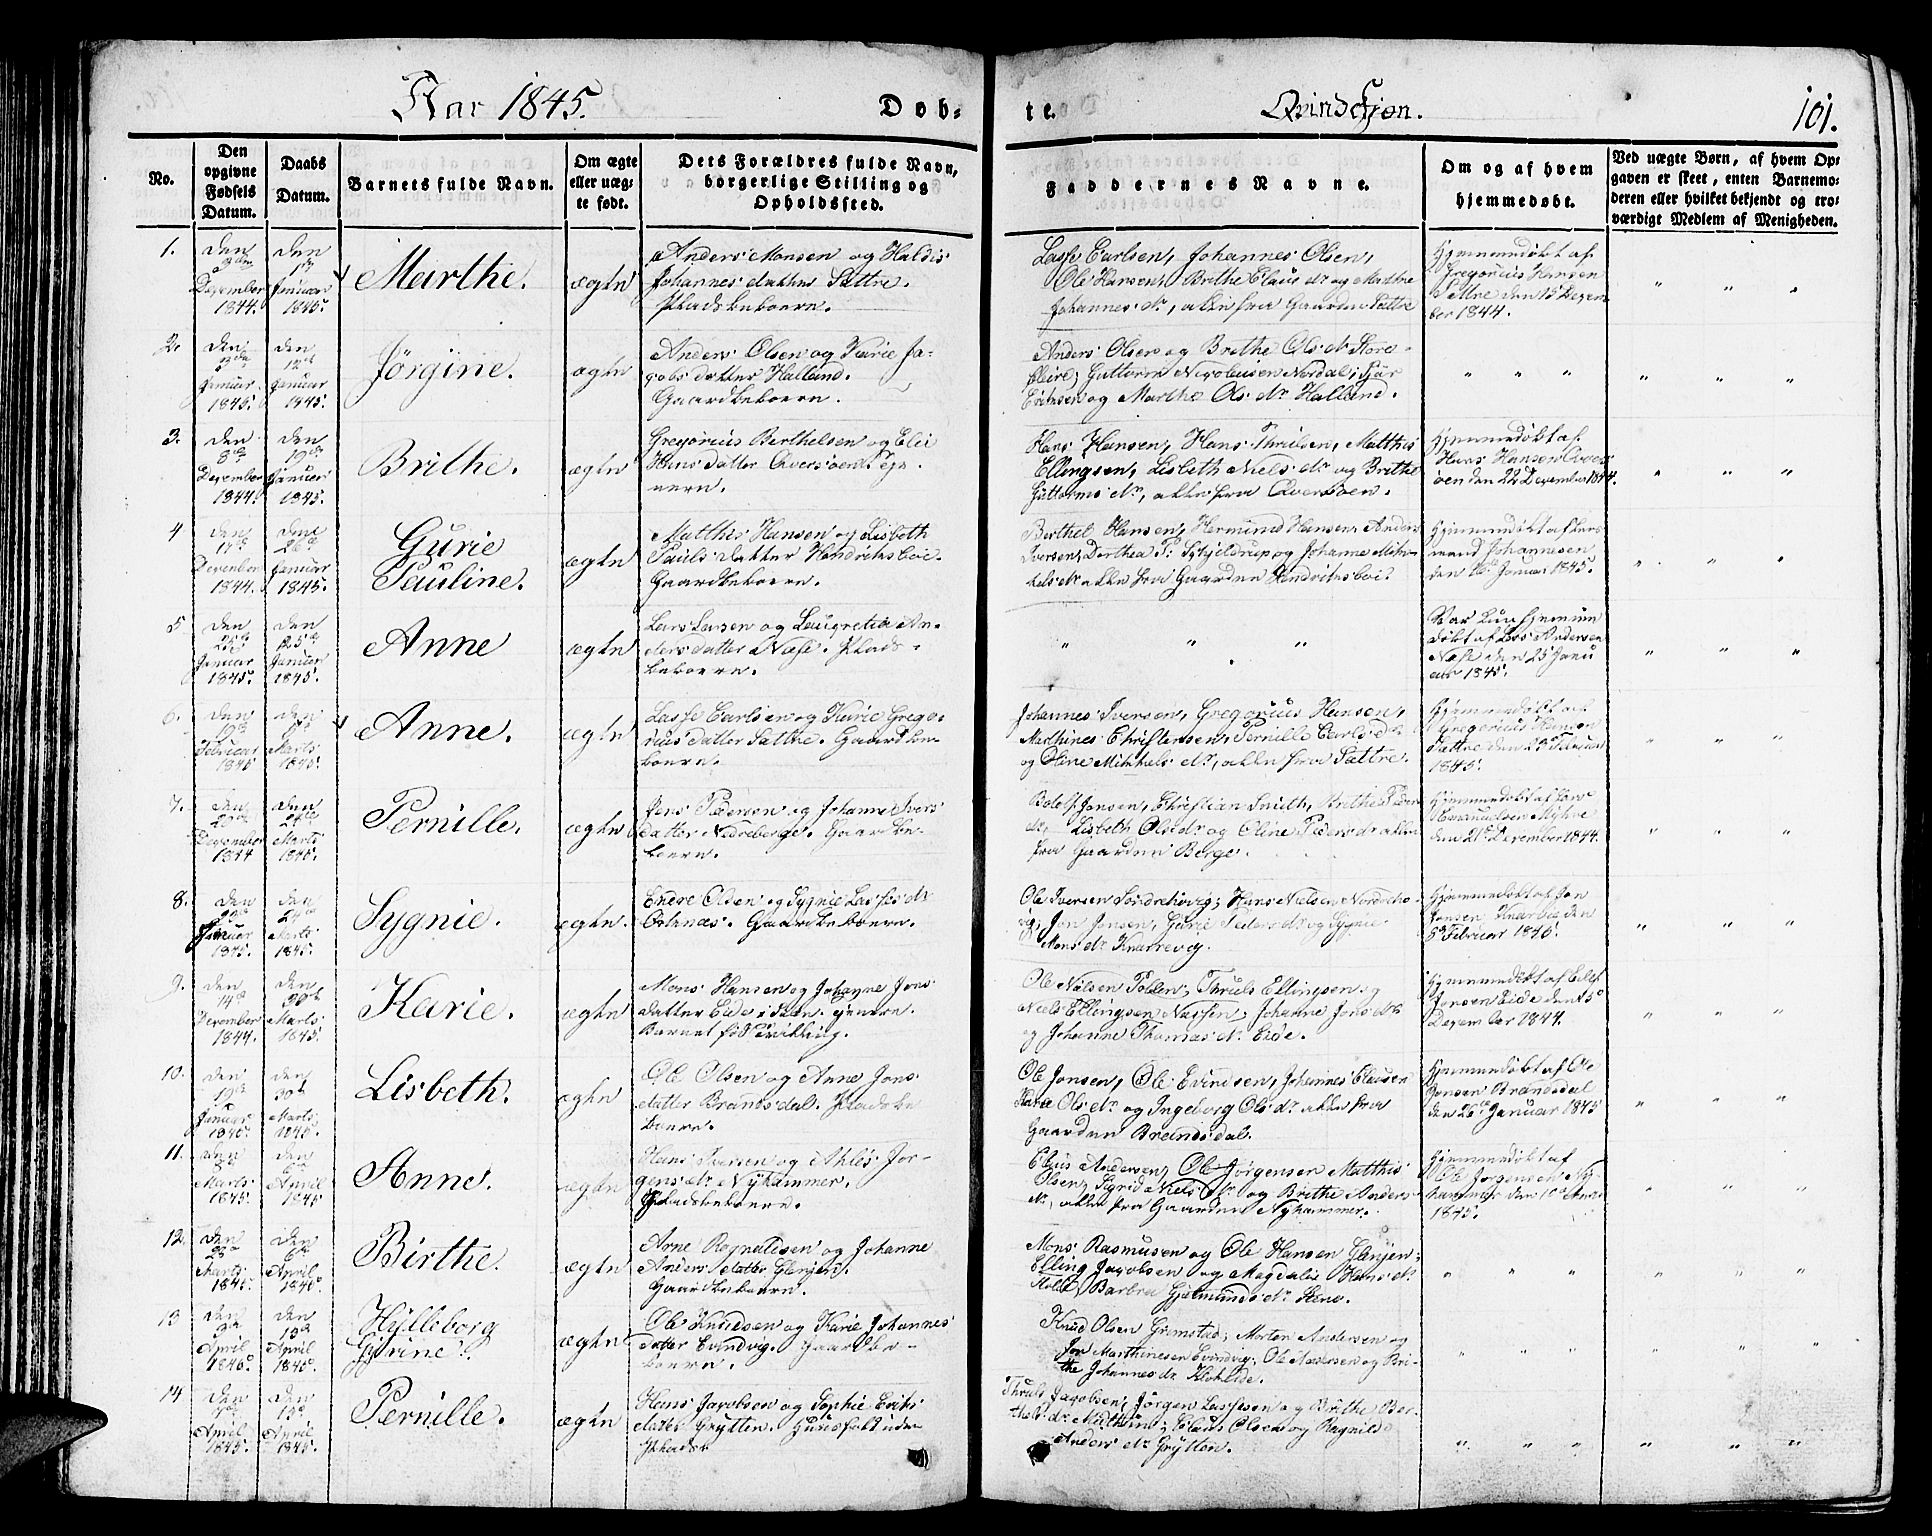 Aar 1845.
Dob-
te.
Qvindekjøn.
101.
No.
Den
opgivne
Fødsels
Datum.
Daabs
Datum.
Barnets fulde Navn.
Om ægte
eller uæg-
te født.
Dets Forældres fulde Navn,
borgerlige Stilling og
Opholdssted.
Faddernes Navne.
Om og af hvem
hjemmedøbt.
Ved uægte Børn, af hvem Op-
gaven er skeet, enten Barnemo-
deren eller hvilket bekjendt og tro-
værdigt Medlem af Menigheden.
1.
den
December
1844.
den
Januar
1845.
Marthe.
ægte
Anders Monsen og Haldis
Johannes datter Sættre.
Pladsbeboere.
Johannes Olsen,
Ole Hansen, Brithe Claus dr og Marthe
Johannes dr, alle fra Gaarden Sættre
Hjemmedøbt af
Gregorius Hansen
Sættre den 15 Decem
ber 1844.
2.
den
Januar
1845.
den
12te
Januar
1845.
Jørgine.
ægte
Anders Olsen og Karie Ja-
cobs datter Halland.
Gaardbeboere.
Anders Olsen og Brithe Ols dr Store-
Guttorm Nicolaisen Nordal,
og Marthe Ols dr Halland.
3.
den
8de
December
1844.
den
19de
Januar
1845.
Brithe.
ægte
Gregorius Berthelsen og Eli
Hans datter
Hans Hansen, Hans Thrulsen, Matthis
Ellingsen, Lisbeth Niels dr og Brithe
Guttorms dr, alle fra
Hjemmedøbt af
Hans Hansen
den 22 December 1844.
4
den
17de
December
1844.
den
26de
Januar
1845.
Gurie
Pauline.
ægte
Matthis Hansen og Lisbeth
Pauls datter Hendriksbøe.
Gaardbeboere.
Berthel Hansen, Hermund Hansen, Anders
Iversen, Dorthea P: Schjeldrup og Johanne Mik-
kels dr alle fra Gaarden Hendriksbøe.
Hjemmedøbt af
Johannesen
den Januar 1845.
5
den
25de
Januar
1845.
den
25de
Januar
1845.
Anne
ægte
Lars Larsen og Laugretia An-
ders datter Næse. Plads-
beboere.
døbt af Lars Andersen
Næse den 25 Janu
ar 1845.
6.
den
19de
Februar
1845
den
Marts
1845.
Anne.
ægte
Lasse Carlsen og Karie Grego-
rius datter Sættre. Gaardbe-
boere.
Johannes Iversen, Gregorius Hansen,
Marthines Christensen, Pernille Carls dr
og Oline Mikkels dr, alle fra Sættre.
Hjemmedøbt af
Gregorius Hansen
Sættre den Februar
1845.
7.
den
December
1844
den
24de
Marts
1845.
Pernille.
ægte
Jens Pedersen og Johanne Ivers
datter Nedreberge. Gaardbe-
boere.
Jensen, Christian Smith, Brithe Peders
dr, Lisbeth Ols dr og Oline Peders dr alle
fra Gaarden Berge.
Hjemmedøbt af
Emanuelsen Myhre
den 21de December 1844.
8.
den
Januar
1845.
den
24de
Marts
1845.
Sygnie.
ægte.
Endre Olsen og Sygnie Lasses dr
Østenæs. Gaardbeboere.
Ole Iversen Søndrehovig; Hans Nielsen Nordreho-
vig; Jon Jonsen, Gurie Peders dr og Sygnie
Mons dr Knarrevig.
Hjemmedøbt af Jon
Jonsen den
Februar 1845.
9.
den
14de
December
1844.
den
30te
Marts
1845.
Karie.
ægte
Mons Hansen og Johanne Jons
datter Eide
Barnet født
Ole Nilsen Polden; Thruls Ellingsen og
Niels Ellingsen Næssen; Johanne Jons dr
og Johanne Thomas dr Eide.
Hjemmedøbt af
Jonsen Eide den 15de
December 1844.
10.
den
19de
Januar
1845.
den
30te
Marts
1845.
Lisbeth.
ægte
Ole Olsen og Anne Jons
datter Brandsdal. Pladsbe
boere.
Ole Jonsen, Ole Evindsen, Johannes Clausen
Karie Ols dr og Ingeborg Ols dr alle fra
Gaarden Brandsdal.
Hjemmedøbt af Ole
Jonsen Brandsdal
den 26de Januar 1845
11.
den
Marts
1845.
den
6te
April
1845
Anne.
ægte
Hans Iversen og Ahles Jør-
gens dr Nyhammer.
Pladsbeboere.
Claus Andersen, Ole Jørgensen Matthis
Olsen, Sigrid Niels dr og Brithe Anders
dr, alle fra Gaarden Nyhammer.
Hjemmedøbt af
Ole Jørgensen Ny
hammer den
1845.
12.
den
Marts
1845.
den
6te
April
1845.
Birthe.
ægte
Arne Rognaldsen og Johanne
Anders datter Glenjen.
Gaardbeboere.
Mons Rasmusen og Ole Hansen Glenjen;
Elling Jacobsen og Magdalie Hans dr
Barbra Gjermunds dr Stene.
13
den
April
1845.
den
13de
April
1845.
Hylleborg
Gurine.
ægte
Ole Knudsen og Karie Johannes
datter Evindvig. Gaardbe-
boere.
Knud Olsen Grimstad; Morten Andersen og
Jon Marthinesen Evindvig; Ole Andersen og Bri-
the Johannes dr
14
den
April
1845.
den
13de
April
1845.
Pernille.
ægte
Hans Jacobsen og Sophie Eriks
datter Grytten. Huusfolk uden
Plads.
Thruls Jacobsen, Jørgen Lassesen og Brithe Ber-
thels dr Claus Olsen og Ragnild
Anders dr Grytten.